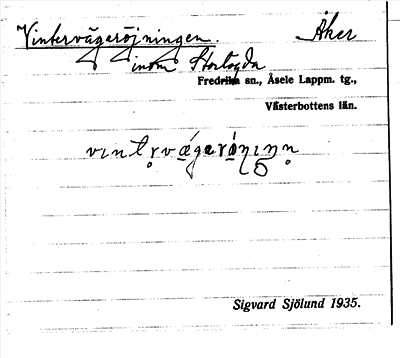 Vintervägaröjningen. Åker
inom Storlogda
Fredrika sn., Åsele Lappm. tg.,
Västerbottens län.
Sigvard Sjölund 1935.